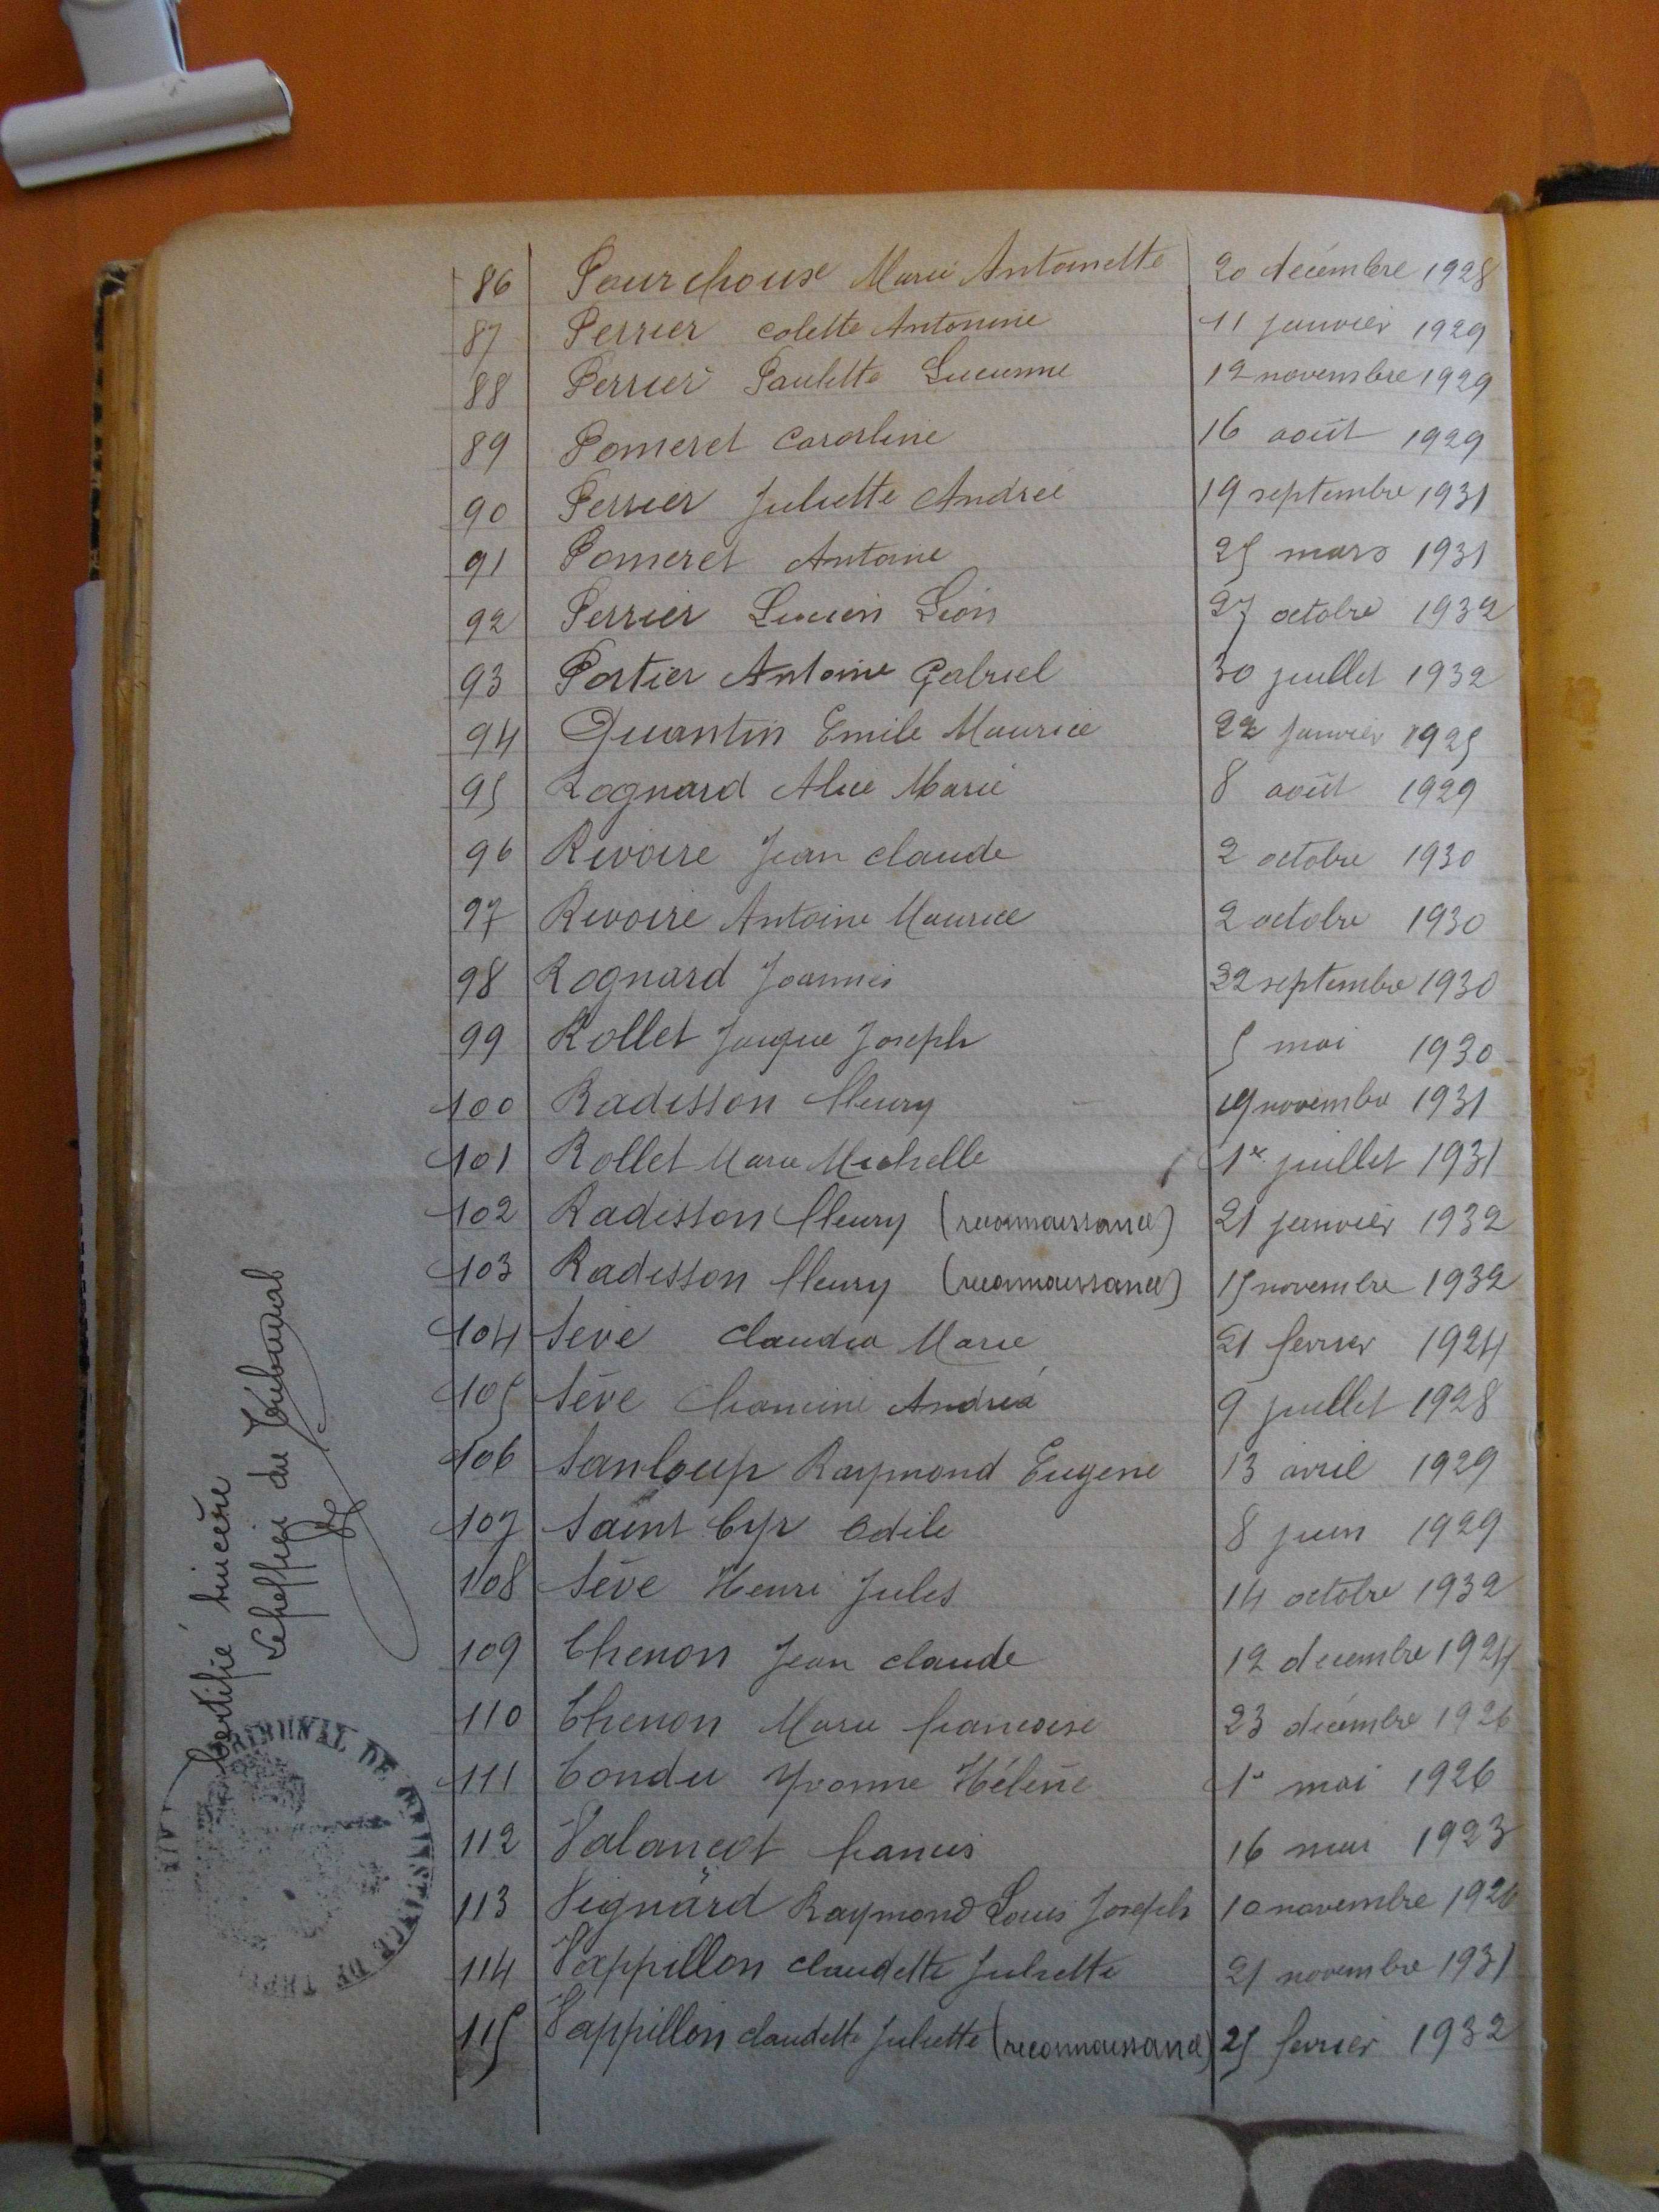 86 Pourchoux Marie Antoinette 20 décembre 1928
87 Perrier Colette Antonine 11 janvier 1929
88 Perrier Paulette Lucienne 12 novembre 1929
89 Pomeret Caroline 16 août 1929
90 Perrier Juliette Andrée 19 septembre 1931
91 Pomeret Antoine 25 mars 1931
92 Perrier Lucien Léon 27 octobre 1932
93 Portier Antoine Gabriel 30 juillet 1932
94 Quantin Emile Maurice 22 janvier 1925
95 Rognard Alice Marie 8 août 1929
96 Rivoire Jean Claude 2 octobre 1930
97 Rivoire Antoine Maurice 2 octobre 1930
98 Rognard Joannès 22 septembre 1930
99 Rollet Jacques Joseph 5 mai 1930
100 Radisson Fleury 19 novembre 1931
101 Rollet Marie Michelle 1er juillet 1931
102 Radisson Fleury (reconnaissance) 21 janvier 1932
103 Radisson Fleury (reconnaissance) 15 novembre 1932
104 Sève Claudia Marie 21 février 1924
105 Sève Francine Andréa 9 juillet 1928
106 Sanloup Raymond Eugene 13 avril 1929
107 Saint Cyr Odile 8 juin 1929
108 Sève Henri Jules 14 octobre 1932
109 Thenon Jean Claude 12 décembre 1924
110 Thenon Marie Françoise 23 décembre 1926
111 Tondu Yvonne Hélène 1er mai 1926
112 Valancot Francis 16 mai 1923
113 Vignard Raymond Louis Joseph 10 novembre 1926
114 Vappillon Claudette Juliette 21 novembre 1931
115 Vappillon Claudette Juliette (reconnaissance) 25 février 1932
Certifié sincère
Le greffier du Tribunal
TRIBUNAL DE 1re INSTANCE DE